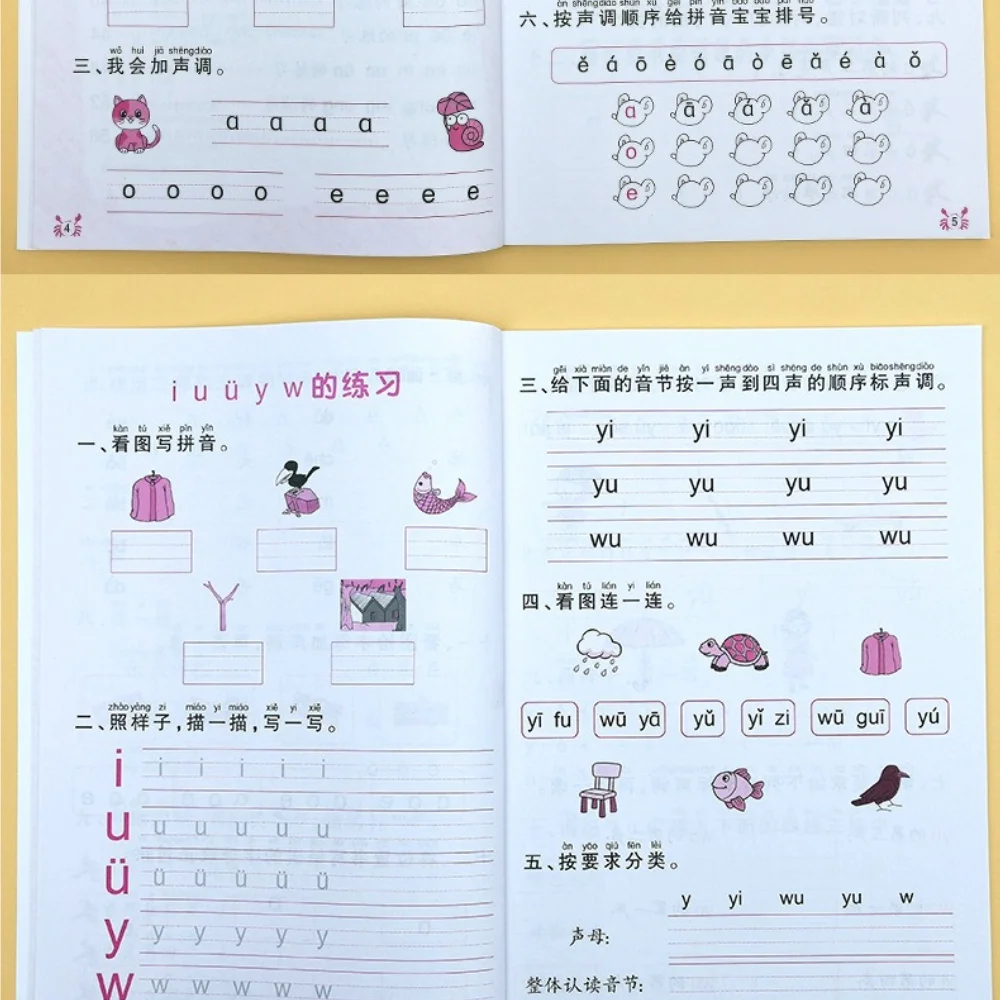 wǒ huì jiā shēngdiào
三、我会加声调。
a a a a
o o o o
e e e e
4
àn shēngdiào shùn xù gěi pīn yīn bǎo bao pái hào
六、按声调顺序给拼音宝宝排号。
ě á ō è ó ā ò ē ǎ é à ǒ
a ā á ǎ à
o
e
5
i u ü y w的练习
kàn tú xiě pīn yīn
一、看图写拼音。
zhào yàng zi miáo yi miáo xiě yi xiě
二、照样子,描一描,写一写。
i i i i i i
u u u u u u
ü ü ü ü ü ü
y y y y y y
w w w w w w
gěi xià miàn de yīn jié àn yī shēng dào sì shēng de shùn xù biāo shēng diào
三、给下面的音节按一声到四声的顺序标声调。
yi yi yi yi
yu yu yu yu
wu wu wu wu
kàn tú lián yi lián
四、看图连一连。
yī fu wū yā yǔ yǐ zi wū guī yú
àn yāo qiú fēn lèi
五、按要求分类。
y yi wu yu w
声母:
整体认读音节: